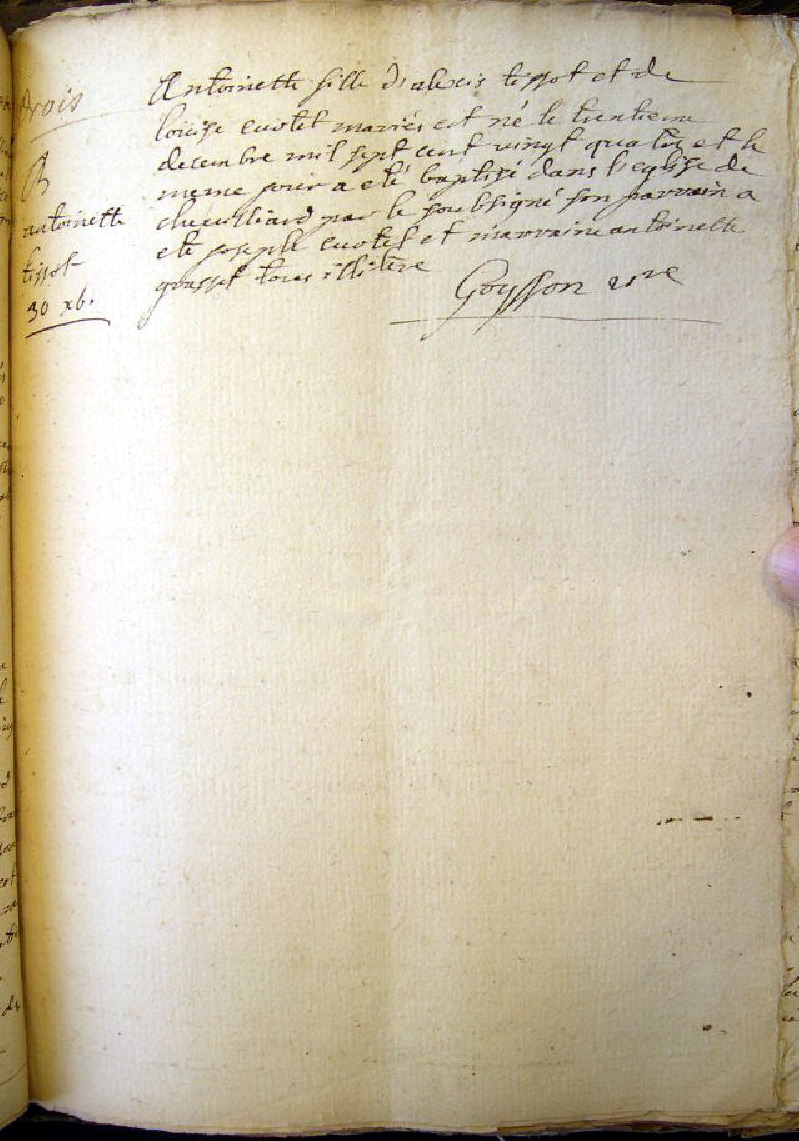 Arois
B
antoinette
tissot
30 xb.
Antoinette fille d'alexis tissot et de
loüise cuotet mariés est né le trentieme
decembre mil sept cent vingt quatre et le
meme jour a eté baptisé dans l'eglise de
chevilliard par le soubsigné son parrain a
eté joseph cuotet et marraine antoinette
grasset tous illitére
Goysson